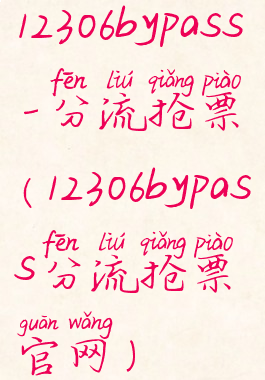 12306bypass
fēn liú qiǎng piào
-分流抢票
(12306bypas
fēn liú qiǎng piào
s分流抢票
guān wǎng
官网)